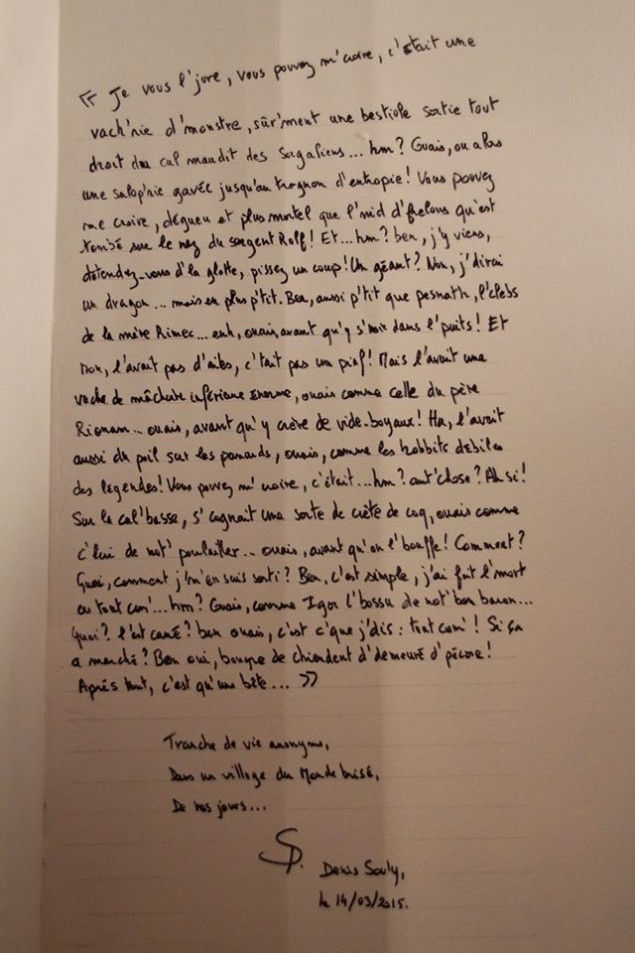 « Je vous l'jure, vous pouvez m'croire, c'était une
vach'rie d'monstre, sûr'ment une bestiole sortie tout
droit du cul maudit des Sagaliens... hm? Ouais, ou alors
une salop'rie gavée jusqu'au trognon d'entropie! Vous pouvez
me croire, dégueu et plus mortel que l'nid d'frelons qu'est
tombé sur le nez du sergent Rolf! Et... hm? ben, j'y viens,
détendez-vous d'la glotte, pissez un coup! Un géant? Non, j'dirai
un dragon... mais en plus p'tit. Ben, aussi p'tit que l'clebs
de la mère Rimec... euh, ouais, avant qu'y s'noie dans l'puits! Et
non, l'avait pas d'ailes, c'tait pas un piaf! Mais l'avait une
vache de mâchoire inférieure énorme, ouais comme celle du père
Rionam... ouais, avant qu'y crève de vide-boyaux! Ha, l'avait
aussi du poil sur les panards, ouais, comme les hobbits débiles
des légendes! Vous pouvez m'croire, c'était... hm? aut'chose? Ah si!
Sur la cal'basse, s'cognait une sorte de crête de coq, ouais comme
c'lui de not' poulailler... ouais, avant qu'on l'bouffe! Comment?
Quoi, comment j'm'en suis sorti? Ben, c'est simple, j'ai fait l'mort
ou tout com'... hm? Ouais, comme Igor l'bossu de not'bon baron...
Quoi? l'est cané? ben ouais, c'est c'que j'dis: tout com'! Si ça
a marché? Ben oui, bougre de chiendent d'demeuré d'pécore!
Après tout, c'est qu'une bête... »
Tranche de vie anonyme,
Dans un village du Monde brisé,
De nos jours...
SD.
Denis Souly,
le 14/03/2015.